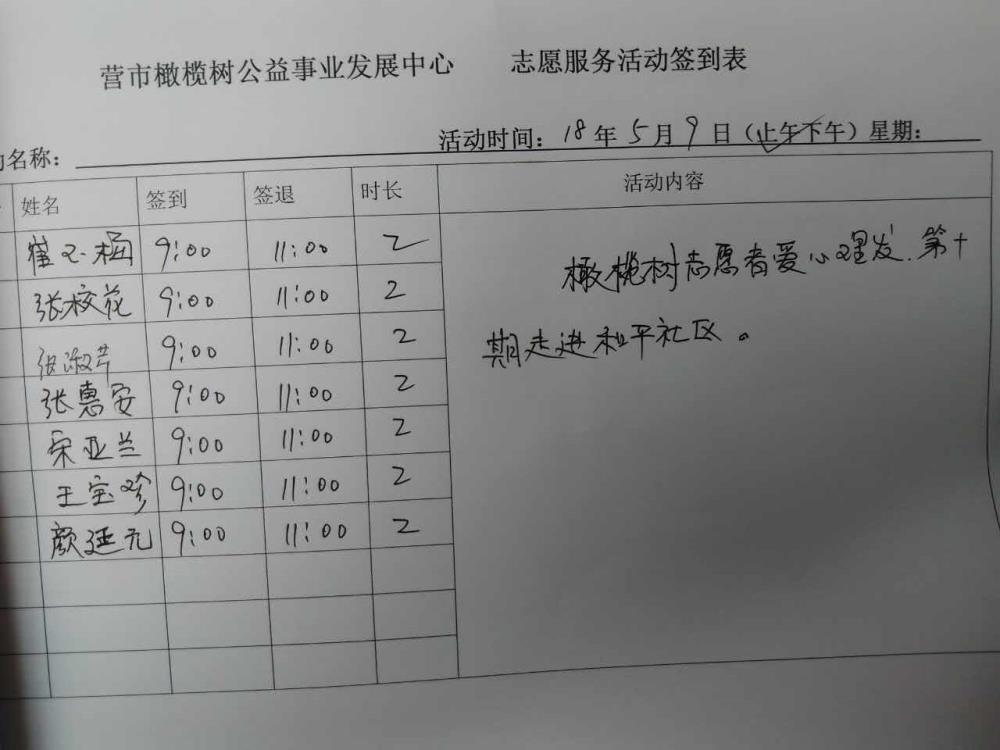 营市橄榄树公益事业发展中心 志愿服务活动签到表
名称： 活动时间：18年5月9日（上午下午）星期：
姓名 签到 签退 时长 活动内容
崔玉梅 9:00 11:00 2
张校花 9:00 11:00 2
张淑芹 9:00 11:00 2
张惠安 9:00 11:00 2
宋亚兰 9:00 11:00 2
王宝珍 9:00 11:00 2
颜廷元 9:00 11:00 2
橄榄树志愿者爱心理发.第十
期走进和平社区。